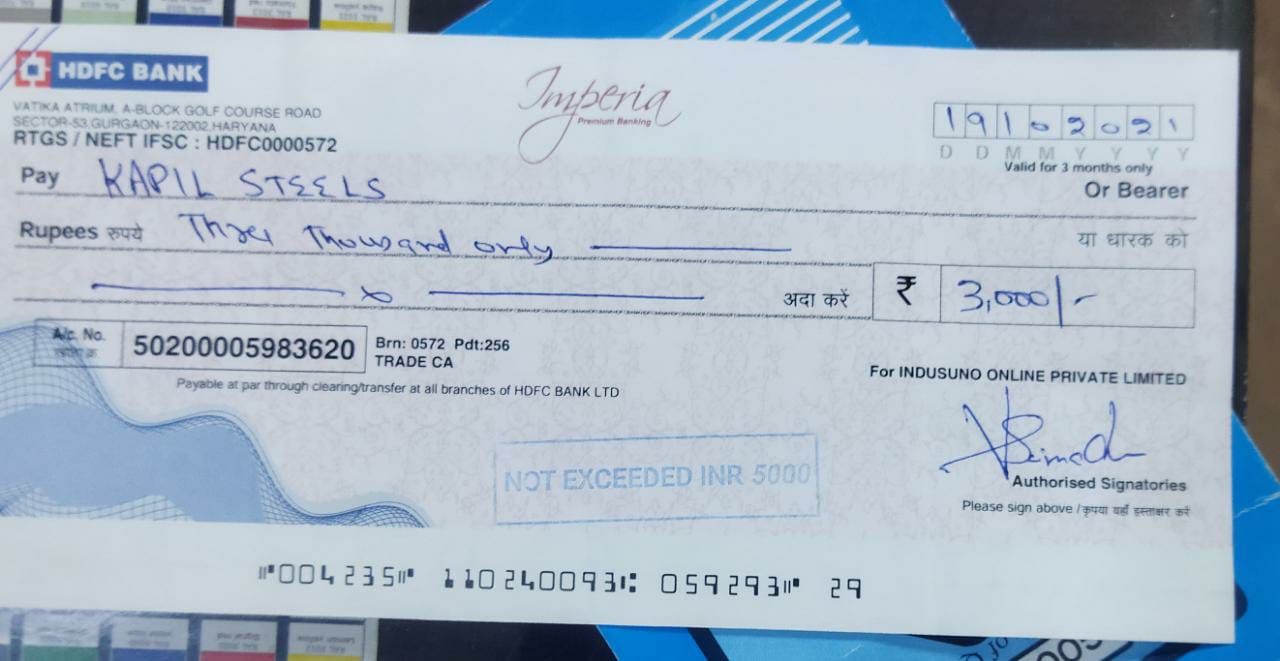 HDFC BANK
Imperia
Premium Banking
VATIKA ATRIUM, A-BLOCK GOLF COURSE ROAD
SECTOR-53,GURGAON-122002,HARYANA
RTGS / NEFT IFSC : HDFC0000572
1 9 1 0 2 0 2 1
D D M M Y Y Y Y
Valid for 3 months only
Pay KAPIL STEELS Or Bearer
Rupees रुपये Three Thousand only या धारक को
अदा करें ₹ 3,000/-
A/c. No. 50200005983620 Brn: 0572 Pdt:256
TRADE CA
Payable at par through clearing/transfer at all branches of HDFC BANK LTD
For INDUSUNO ONLINE PRIVATE LIMITED
NOT EXCEEDED INR 5000
Authorised Signatories
Please sign above / कृपया यहाँ हस्ताक्षर करें
⑈004235⑈ 110240093⑆ 059293⑈ 29